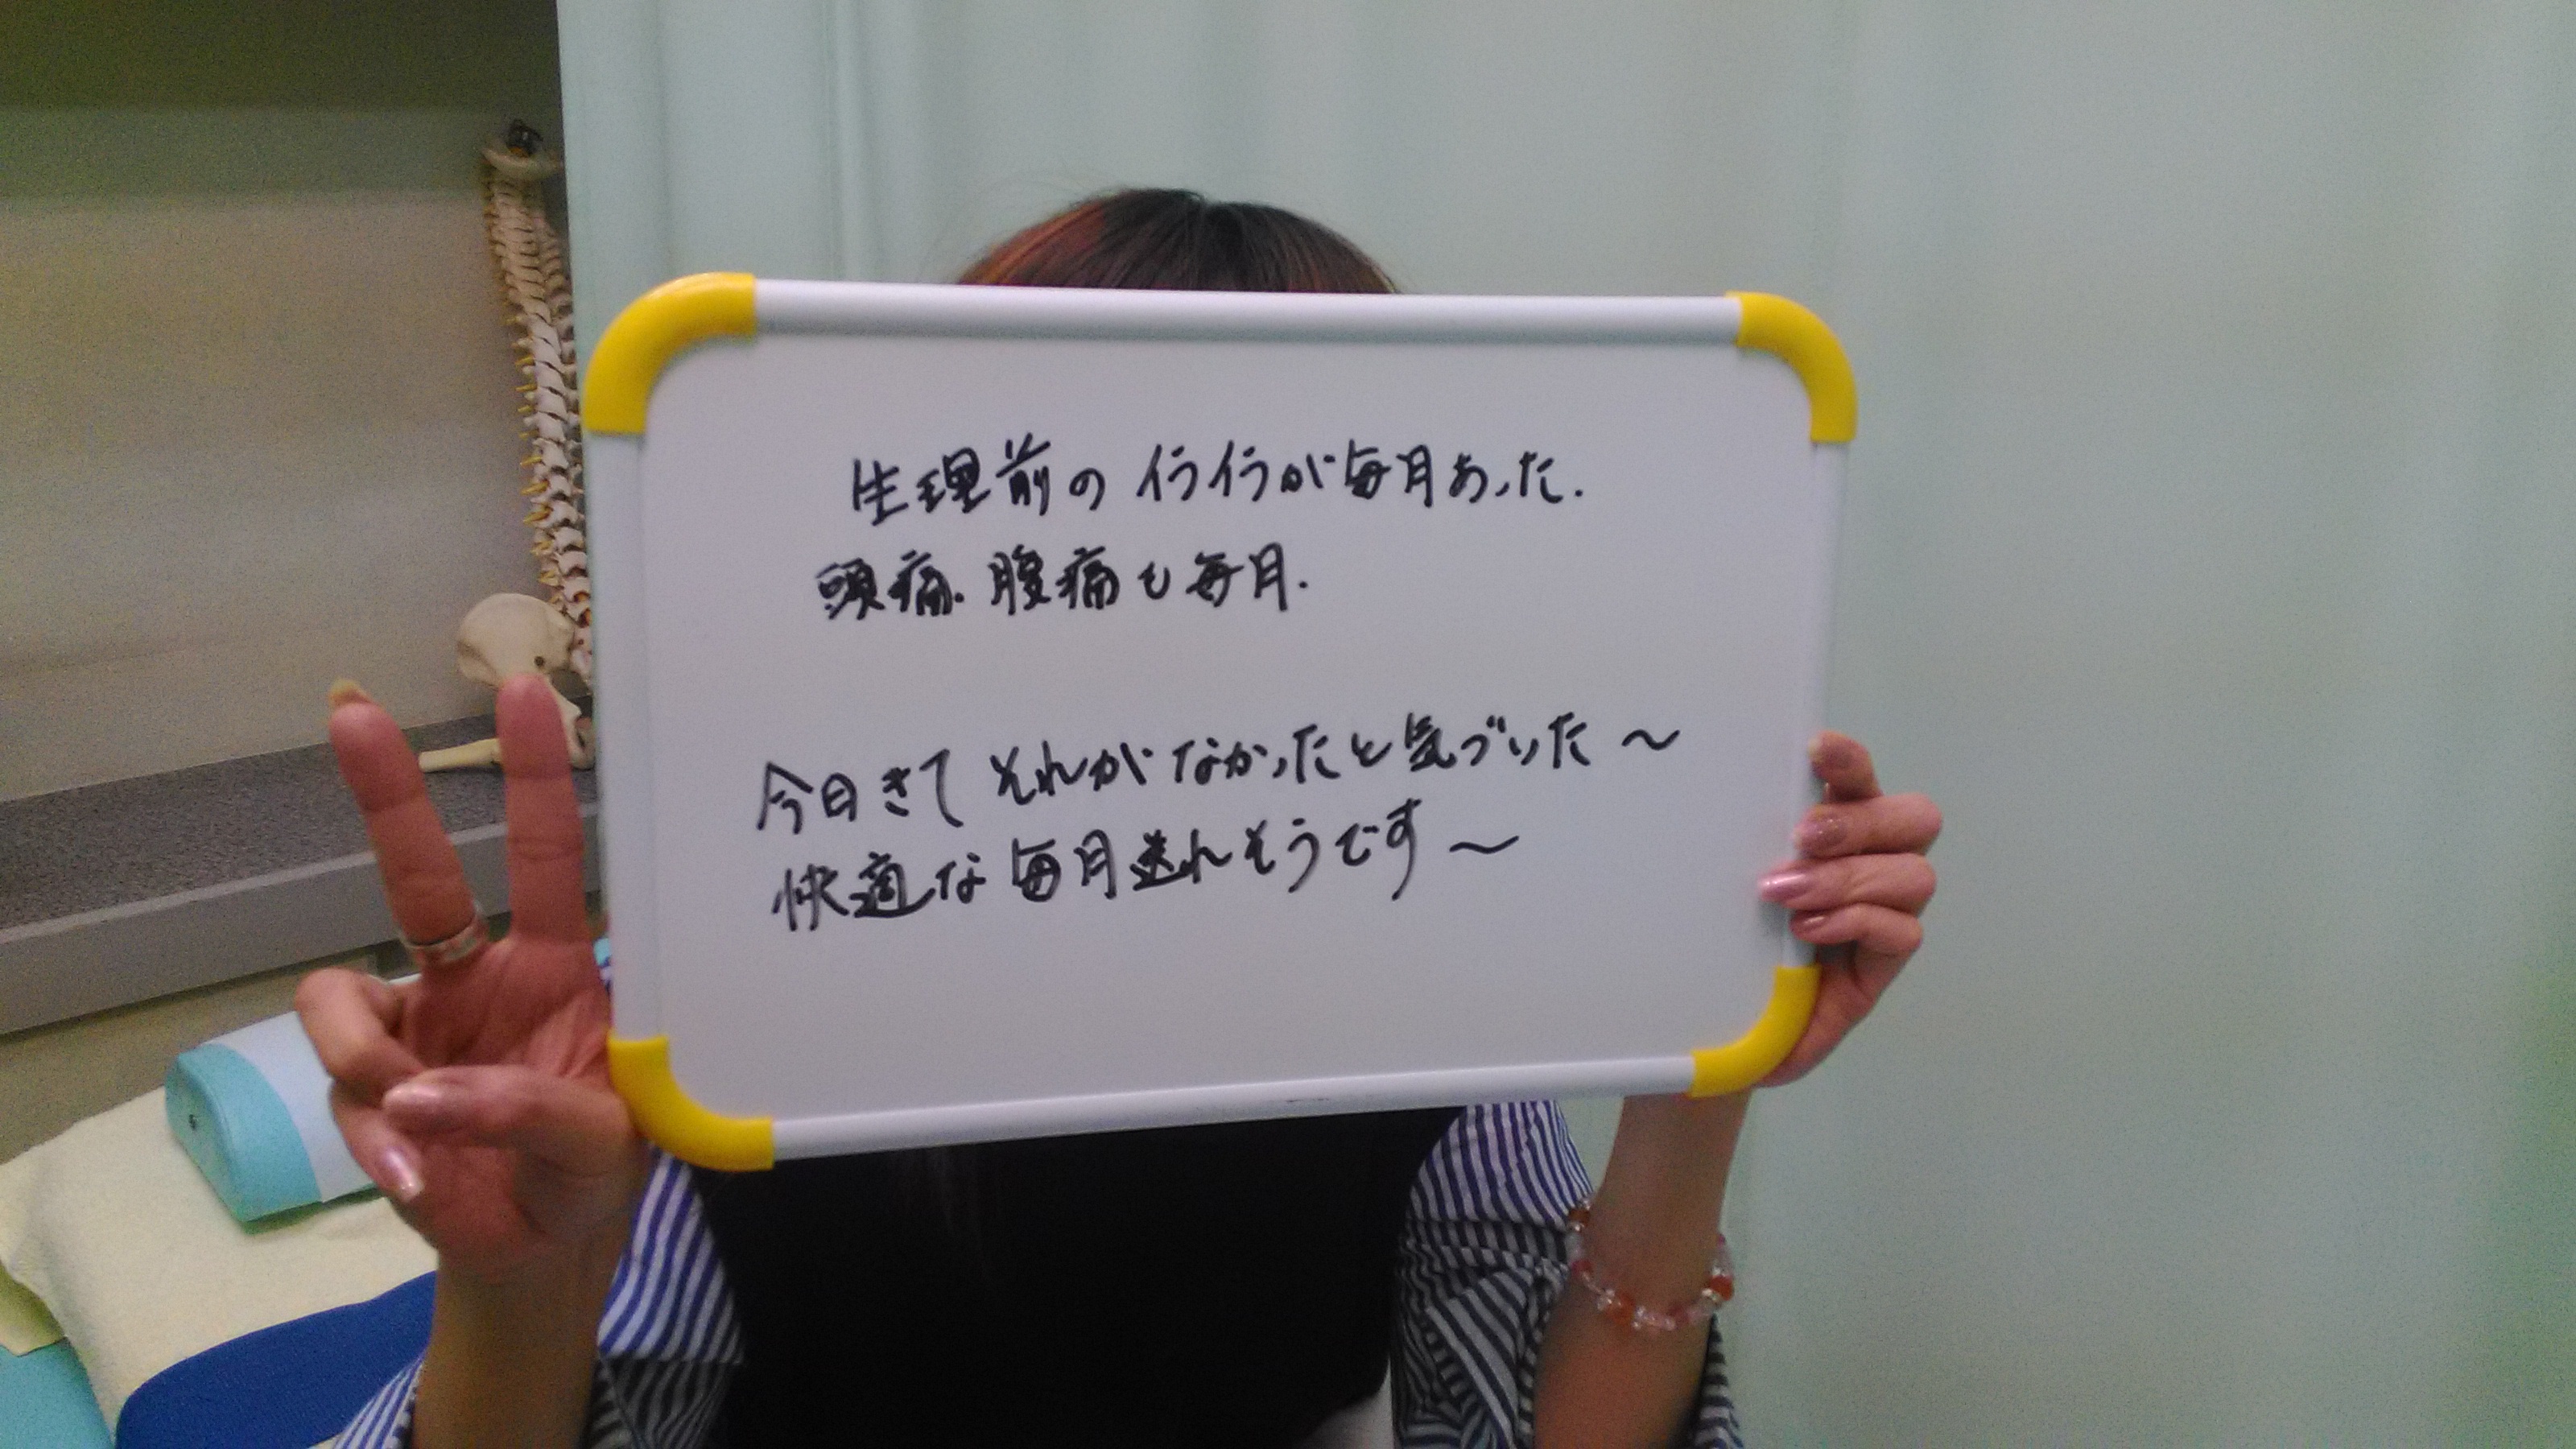 生理前のイライラが毎月あった.
頭痛.腹痛も毎月.
今日きてそれがなかったと気づいた〜
快適な毎月送れそうです〜